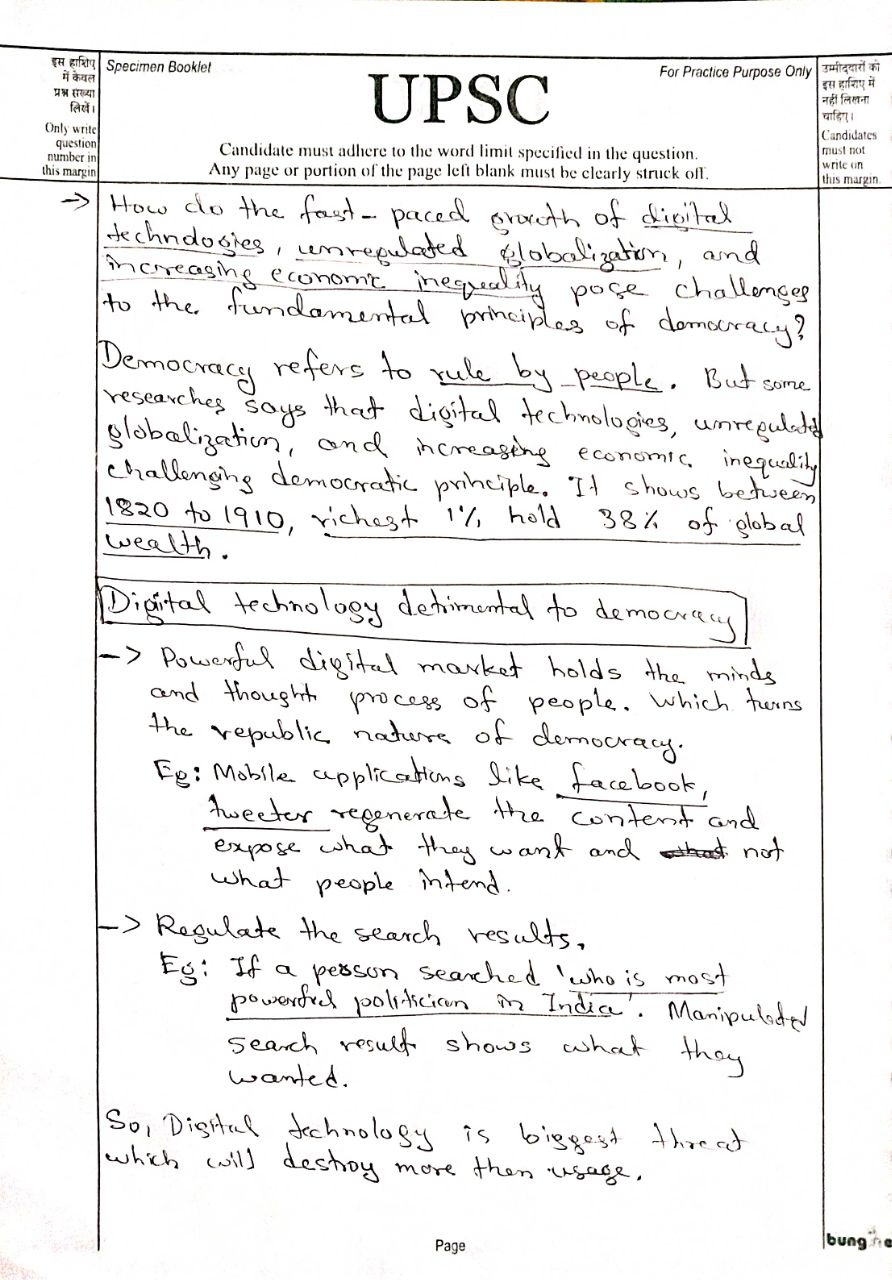 इस हाशिए
में केवल
प्रश्न संख्या
लिखें।
Only write
question
number in
this margin
Specimen Booklet
For Practice Purpose Only
UPSC
Candidate must adhere to the word limit specified in the question.
Any page or portion of the page left blank must be clearly struck off.
उम्मीदवारों को
इस हाशिए में
नहीं लिखना
चाहिए।
Candidates
must not
write on
this margin
-> How do the fast-paced growth of digital
technologies, unregulated globalization, and
increasing economic inequality pose challenges
to the fundamental principles of democracy?
Democracy refers to rule by people. But some
researches says that digital technologies, unregulated
globalization, and increasing economic inequality
challenging democratic principle. It shows between
1820 to 1910, richest 1% hold 38% of global
wealth.
Digital technology detrimental to democracy
-> Powerful digital market holds the minds
and thought process of people. Which turns
the republic nature of democracy.
Eg: Mobile applications like facebook,
tweeter regenerate the content and
expose what they want and not
what people intend.
-> Regulate the search results.
Eg: If a person searched 'who is most
powerful politician in India'. Manipulated
search result shows what they
wanted.
So, Digital technology is biggest threat
which will destroy more then usage.
Page